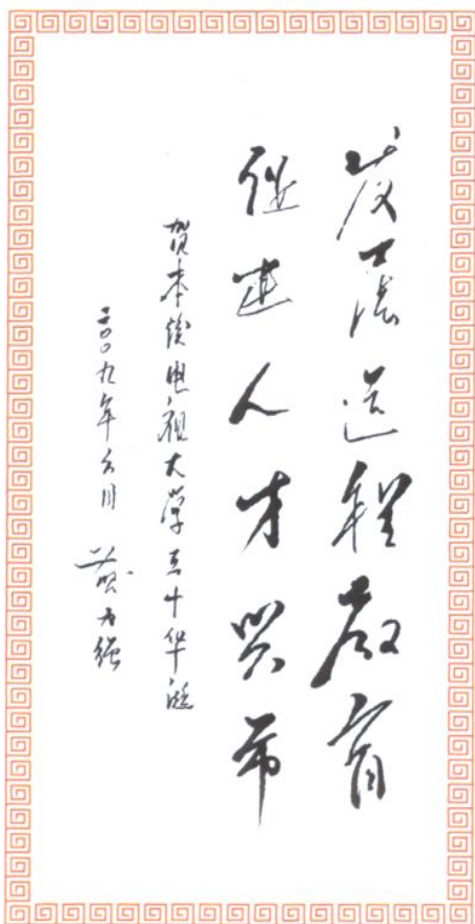 发展远程教育
促进人才兴市
贺本溪电视大学三十华诞
二〇〇九年六月